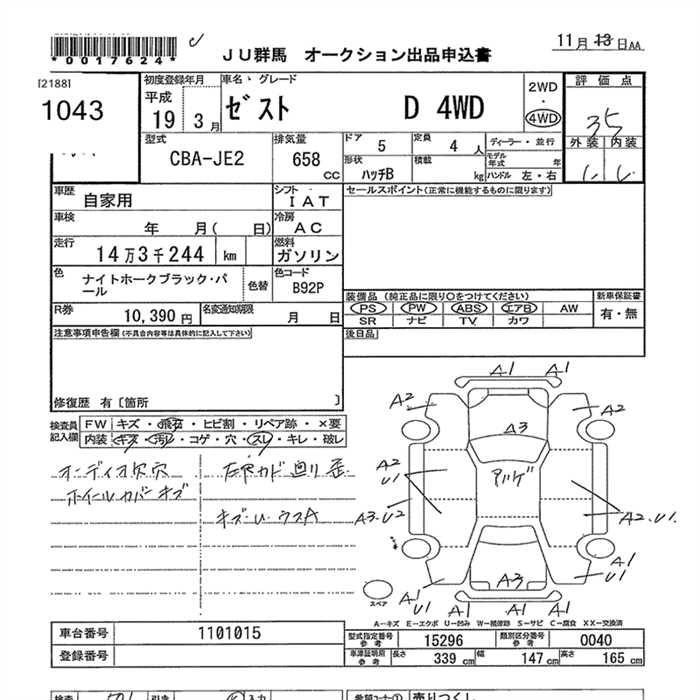 *0017624*
JU群馬 オークション出品申込書
11月13日AA
[2188]
1043
初度登録年月
平成
19 3月
車名・グレード
ゼスト D 4WD
2WD
・
4WD
評価点
35
型式
CBA-JE2
排気量
658
cc
ドア 5
定員 4人
ディーラー・並行
形状
ハッチB
積載 kg
モデル年式 年
ハンドル 左・右
外装 内装
車歴
自家用
シフト
IAT
セールスポイント(正常に機能するものに限ります)
車検
年 月( 日)
冷房
AC
走行
14万3千244 km
燃料
ガソリン
色
ナイトホークブラック・パール
色替
色コード
B92P
装備品(純正品に限り○をつけてください)
PS PW ABS エアB AW
SR ナビ TV カワ
新車保証書
有・無
R券
10,390円
名変通知期限
月 日
後日品
注意事項申告欄(不具合内容等は具体的に記入して下さい)
修復歴 有[箇所 ]
検査員
記入欄
FW キズ・飛石・ヒビ割・リペア跡・×要
内装 キズ・汚レ・コゲ・穴・スレ・キレ・破レ
オーディオ欠穴
ホイールカバーキズ
キズ・U・ウスA
A1 A1
A2 A2
A3
A2
U1
アハゲ
A3・U2
A2・U1
A1
U1
A3
A1
U1
A1 A1
スペア
A-キズ E-エクボ U-凹み W-補修跡 S-サビ C-腐食 XX-交換済
車台番号 1101015
登録番号
型式指定番号
参考
15296
類別区分番号
参考
0040
車庫証明用
参考
長さ 339cm 幅 147cm 高さ 165cm